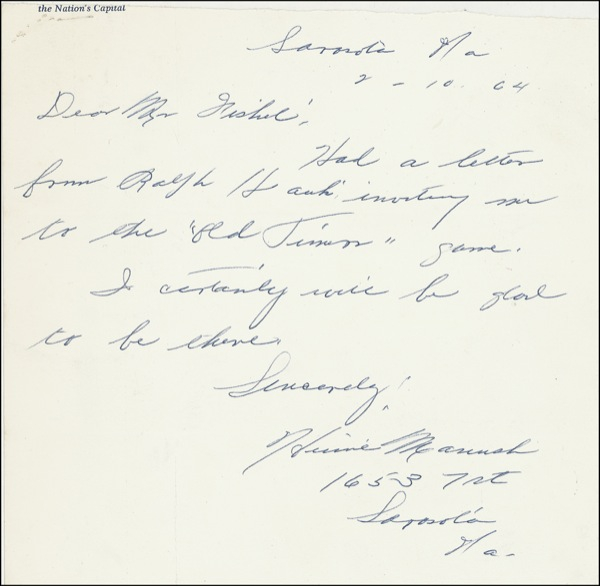 the Nation's Capital
Sarasota Fla
2 - 10. 64
Dear Mr Fishel,
Had a letter
from Ralph Houk inviting me
to the "Old Timers" game.
I certainly will be glad
to be there.
Sincerely,
Heinie Manush
1653 7 st
Sarasota
Fla.